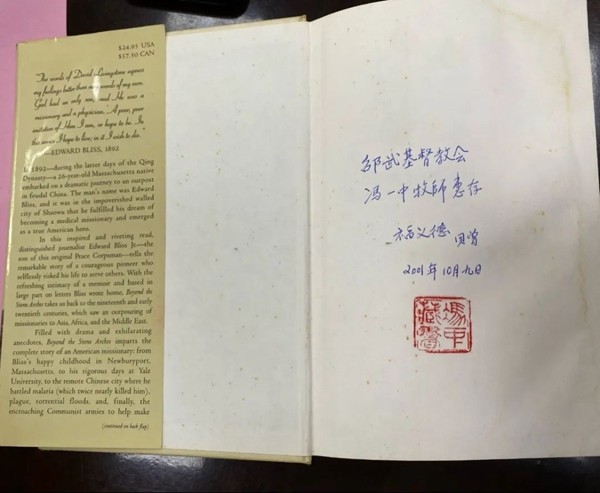 $24.95 USA
$37.50 CAN
"The words of David Livingstone express
my feelings better than any words of my own.
'God had an only son, and He was a
missionary and a physician.' A poor, poor
imitation of Him I am, or hope to be. In
this service I hope to live; in it I wish to die."
—EDWARD BLISS, 1892
In 1892—during the latter days of the Qing
Dynasty—a 26-year-old Massachusetts native
embarked on a dramatic journey to an outpost
in feudal China. The man's name was Edward
Bliss, and it was in the impoverished walled
city of Shaowu that he fulfilled his dream of
becoming a medical missionary and emerged
as a true American hero.
In this inspired and riveting read,
distinguished journalist Edward Bliss Jr.—the
son of this original Peace Corpsman—tells the
remarkable story of a courageous pioneer who
selflessly risked his life to serve others. With the
refreshing intimacy of a memoir and based in
large part on letters Bliss wrote home, Beyond the
Stone Arches takes us back to the nineteenth and early
twentieth centuries, which saw an outpouring of
missionaries to Asia, Africa, and the Middle East.
Filled with drama and exhilarating
anecdotes, Beyond the Stone Arches imparts the
complete story of an American missionary: from
Bliss's happy childhood in Newburyport,
Massachusetts, to his rigorous days at Yale
University, to the remote Chinese city where he
battled malaria (which twice nearly killed him),
plague, torrential floods, and, finally, the
encroaching Communist armies to help make
(continued on back flap)
邵武基督教会
冯一中牧師惠存
福义德
2001年10月九日